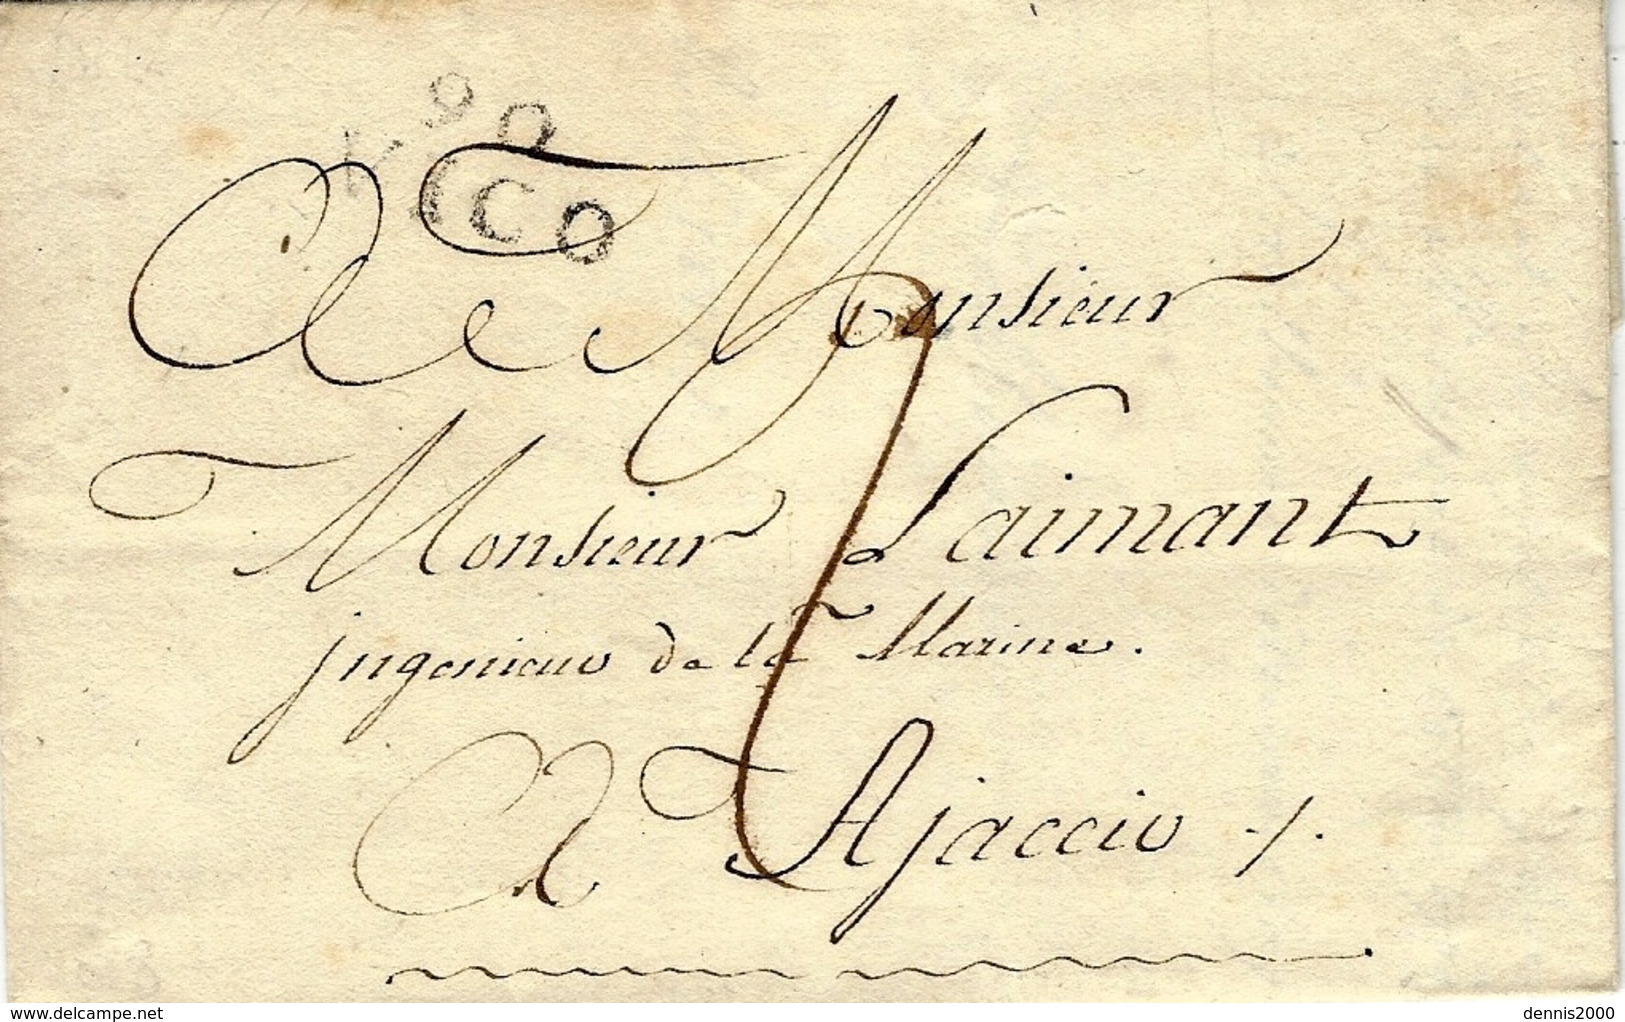 90
VICO
A Monsieur
Monsieur Laimant
jngenieur de la Marine.
A Ajaccio ./.
delcampe.net
dennis2000